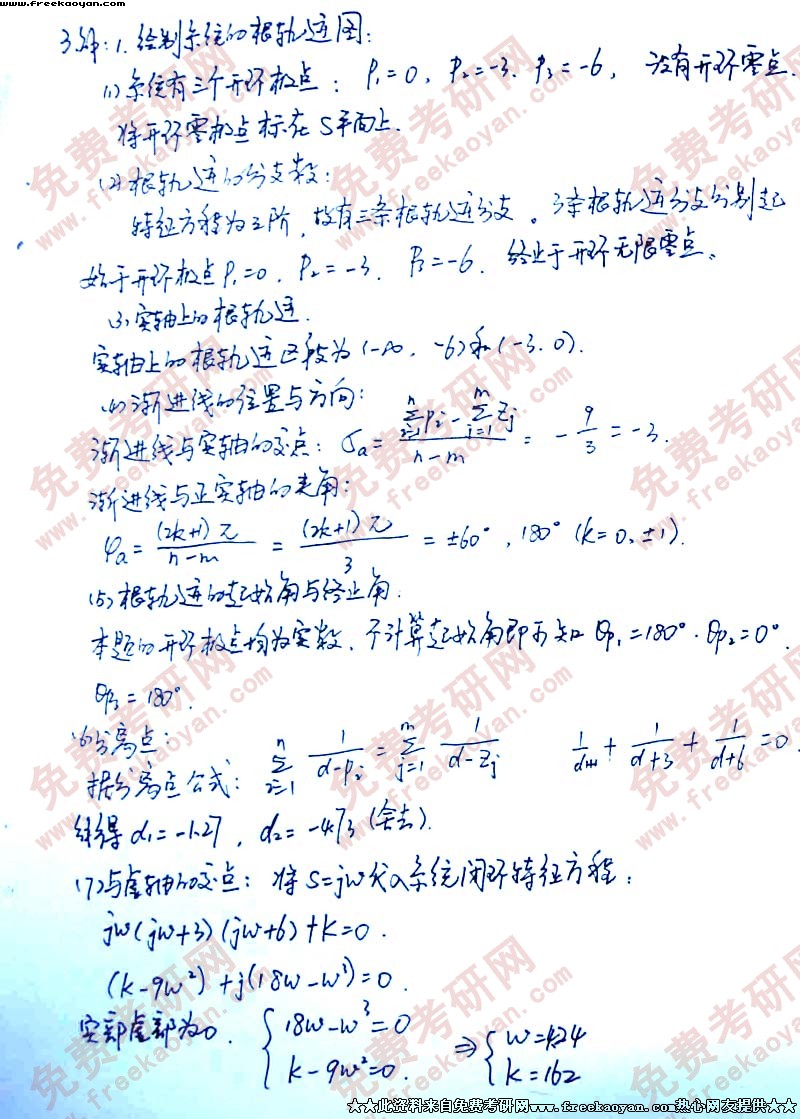 www.freekaoyan.com
3.解:1.绘制系统的根轨迹图:
(1)系统有三个开环极点: P₁=0, P₂=-3, P₃=-6, 没有开环零点.
将开环零极点标在S平面上.
(2)根轨迹的分支数:
特征方程为三阶,故有三条根轨迹分支。3条根轨迹分支分别起
始于开环极点P₁=0, P₂=-3, P₃=-6, 终止于开环无限零点。
(3)实轴上的根轨迹.
实轴上的根轨迹区段为(-∞, -6)和(-3,0).
(4)渐进线的位置与方向:
渐进线与实轴的交点: σa = (∑_{i=1}^{n} Pi - ∑_{j=1}^{m} Zj)/(n-m) = -9/3 = -3.
渐进线与正实轴的夹角:
φa = (2k+1)π/(n-m) = (2k+1)π/3 = ±60°, 180° (k=0,±1).
(5)根轨迹的起始角与终止角.
本题的开环极点均为实数,不计算起始角即可知 θp₁=180°. θp₂=0°,
θp₃=180°.
(6)分离点:
据分离点公式: ∑_{i=1}^{n} 1/(d-Pi) = ∑_{j=1}^{m} 1/(d-Zj) 1/d + 1/(d+3) + 1/(d+6) = 0.
解得 d₁=-1.27, d₂=-4.73 (舍去).
(7)与虚轴的交点: 将S=jω代入系统闭环特征方程:
jω(jω+3)(jω+6)+K=0.
(k-9ω²)+j(18ω-ω³)=0.
实部虚部为0. { 18ω-ω³=0 k-9ω²=0. ⇒ { ω=4.24 k=162
★★此资料来自免费考研网www.freekaoyan.com热心网友提供★★
免费考研网
www.freekaoyan.com